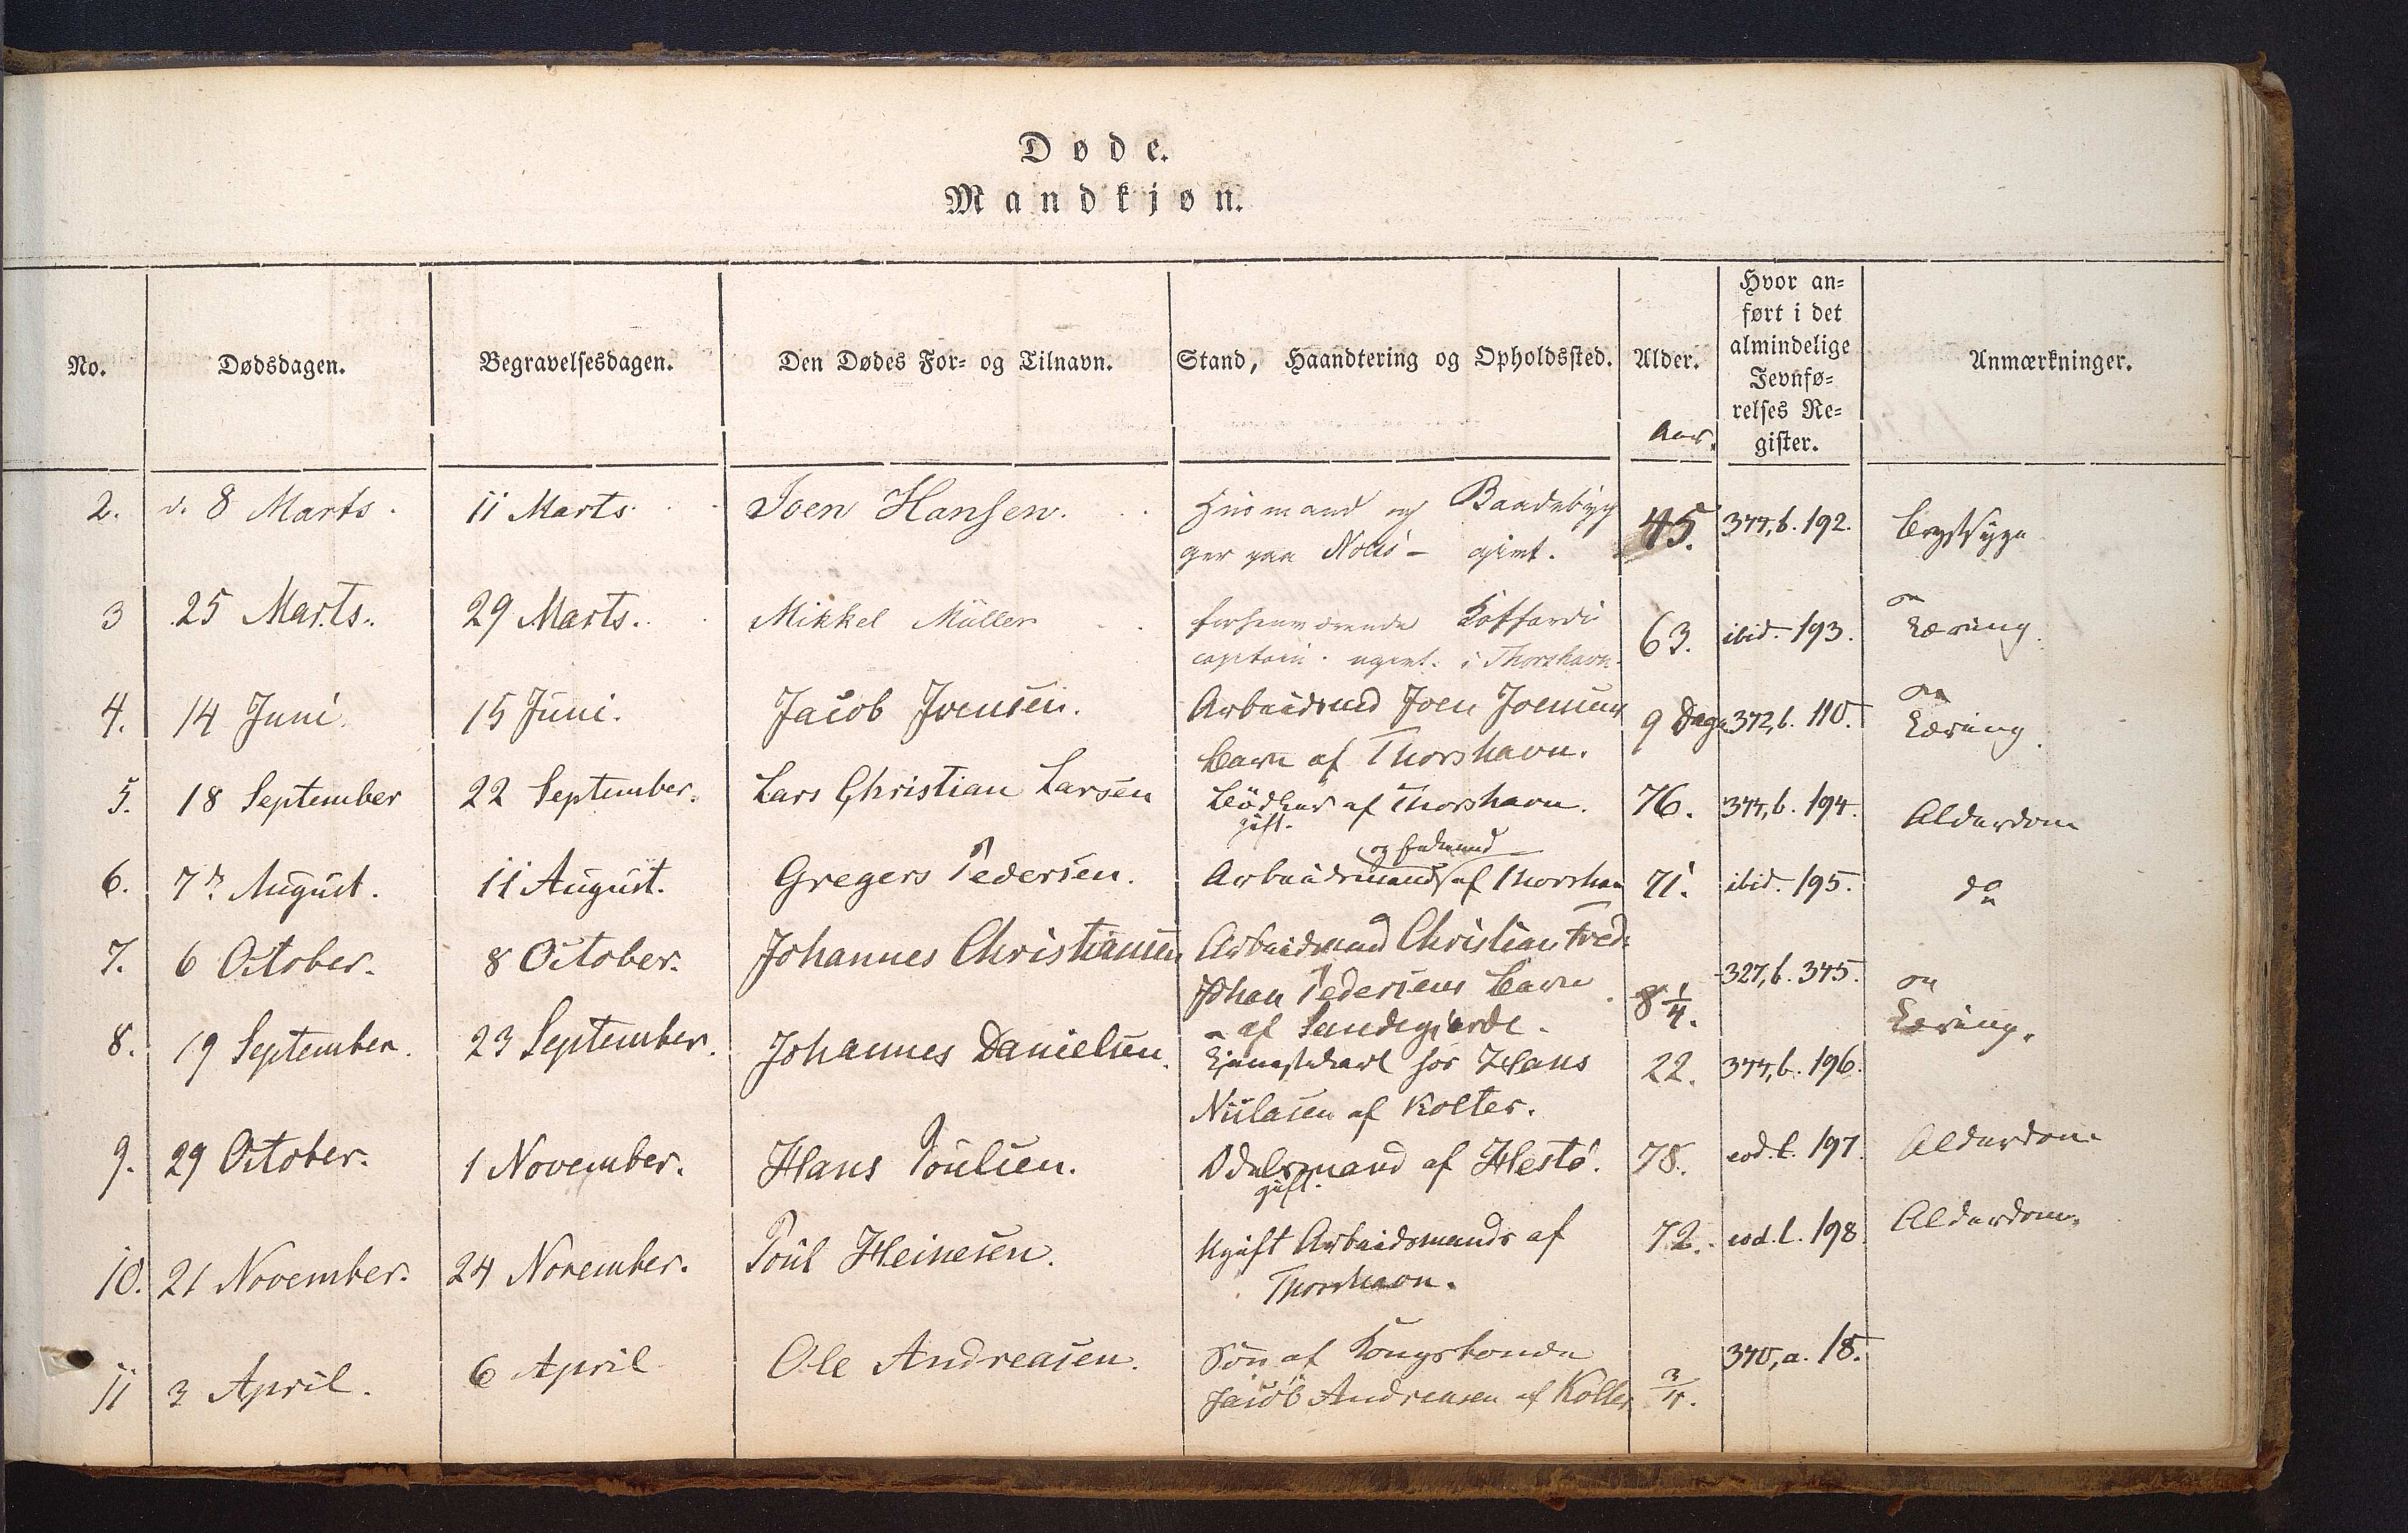 Døde.
Mandkjøn.
No.
Dødsdagen.
Begravelsesdagen.
Den Dødes For- og Tilnavn.
Stand, Haandtering og Opholdssted.
Alder.
Aar.
Hvor an-
ført i det
almindelige
Jevnfø-
relses Re-
gister.
Anmærkninger.
2. d. 8 Marts. 11 Marts. Joen Hansen. Huusmand og Baadebyg
ger paa Nolsö - givt. 45. 377, b. 192. Brystsyge
3 25 Marts. 29 Marts. Mikkel Müller forhenværende Koffardi
capitain. ugivt. i Thorshavn. 63. ibid. 193. Tæring.
4. 14 Juni. 15 Juni. Jacob Joensen. Arbeidsmd Joen Joensens
Barn af Thorshavn. 9 Dage 372, b. 110. Tæring.
5. 18 September 22 September. Lars Christian Larsen Bödker af Thorshavn.
gift. 76. 377, b. 194. Alderdom
6. 7de August. 11 August. Gregers Pedersen. og Enkemand
Arbeidsmand af Thorshavn 71. ibid. 195. do
7. 6 October. 8 October. Johannes Christiansen Arbeidsmand Christian Fred.
Johan Pedersens Barn
af Sandegjerde. 8 1/4. 327, b. 375. Tæring.
8. 19 September. 23 September. Johannes Danielsen. Tjenestekarl hos Hans
Niclasen af Kolter. 22. 377, b. 196.
9. 29 October. 1 November. Hans Poulsen. Odelsmand af Hestö.
gift. 78. eod. l. 197. Alderdom
10. 21 November. 24 November. Poul Heinesen. Ugift Arbeidsmand af
Thorshavn. 72. eod. l. 198. Alderdom.
11 3 April. 6 April Ole Andreasen. Sön af Kongsbonde
Jacob Andreasen af Kolter 3/4. 370, a. 18.